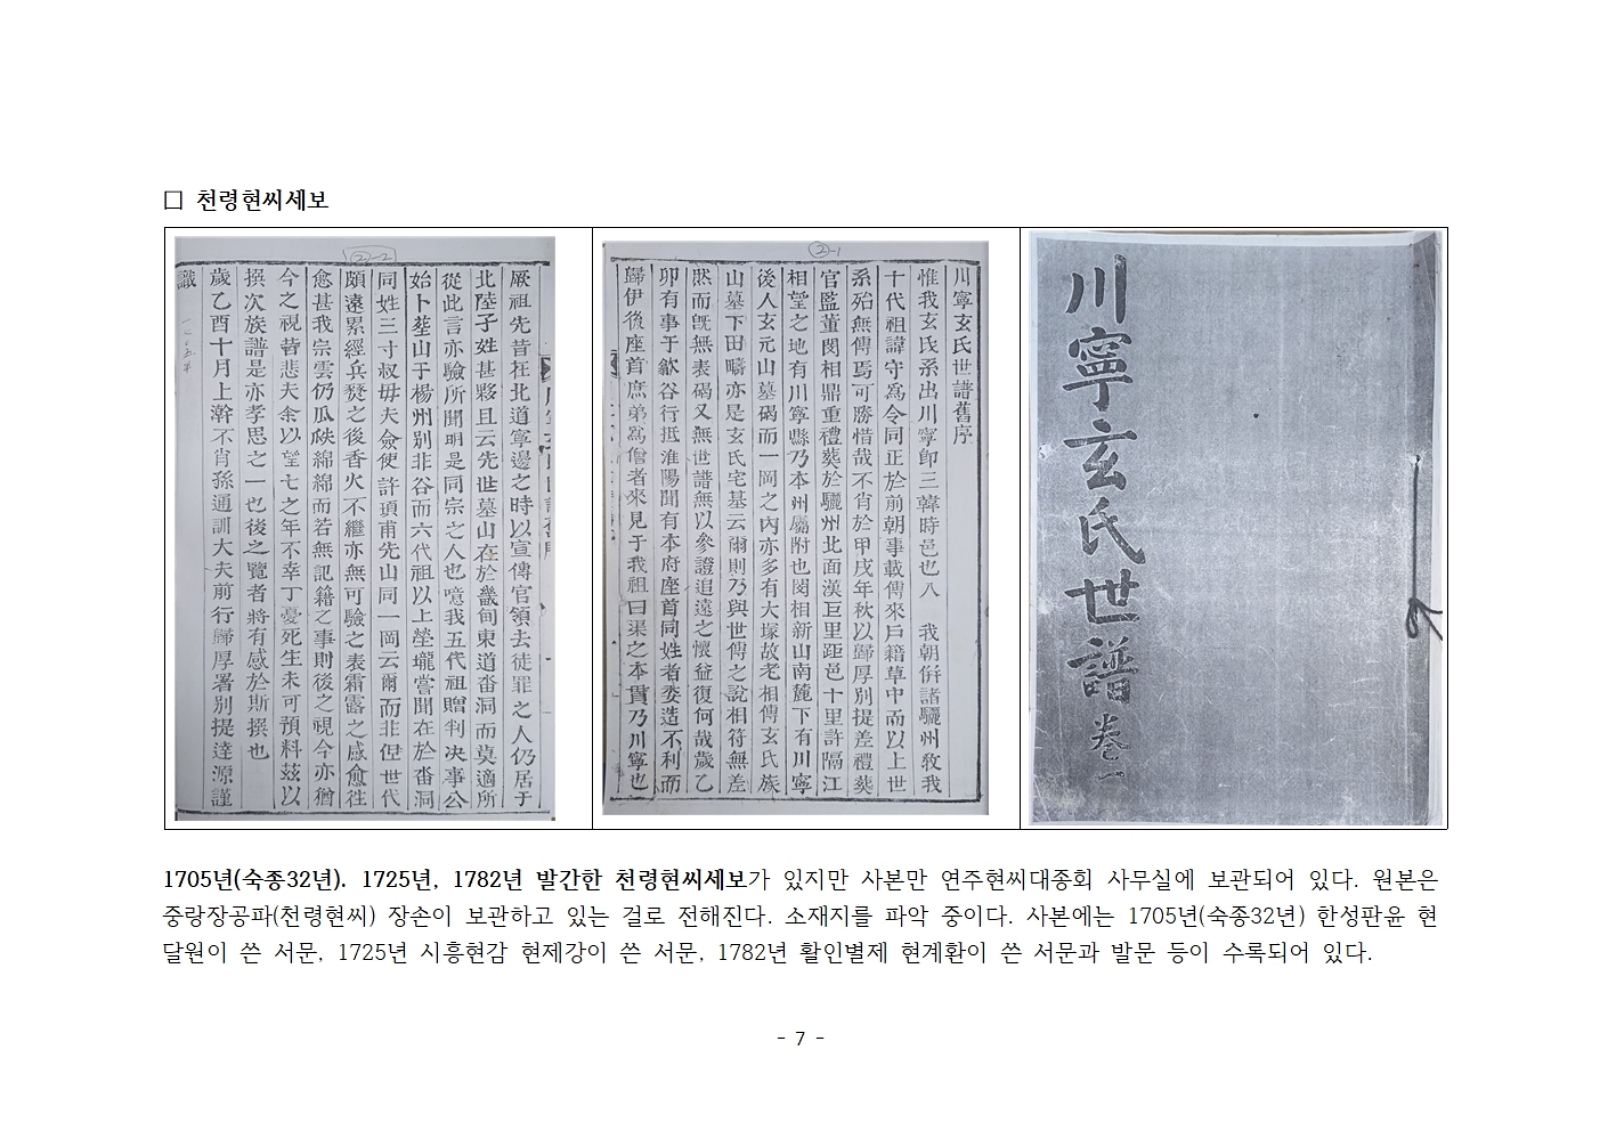 □ 천령현씨세보
川寧玄氏世譜 卷一
②-1
川寧玄氏世譜舊序
惟我玄氏系出川寧卽三韓時邑也八 我朝倂諸驪州敎我
十代祖諱守爲令同正於前朝事載傳來戶籍草中而以上世
系殆無傳焉可勝惜哉不肖於甲戌年秋以歸厚別提差禮葬
官監董閔相鼎重禮葬於驪州北面漢巨里距邑十里許隔江
相望之地有川寧縣乃本州屬附也閔相新山南麓下有川寧
後人玄元山墓碣而一岡之內亦多有大塚故老相傳玄氏族
山墓下田疇亦是玄氏宅基云爾則乃與世傳之說相符無差
然而旣無表碣又無世譜無以參證追遠之懷益復何哉歲乙
卯有事于歙谷行抵淮陽聞有本府座首同姓者委造不利而
歸伊後座首庶弟爲僧者來見于我祖曰渠之本貫乃川寧也
②-2
厥祖先昔在北道寧邊之時以宣傳官領去徒罪之人仍居于
北陸子姓甚夥且云先世墓山在於畿甸東道畓洞而莫適所
從此言亦驗所聞明是同宗之人也噫我五代祖贈判決事公
始卜塟山于楊州別非谷而六代祖以上塋壠嘗聞在於畓洞
同姓三寸叔母夫僉使許頊甫先山同一岡云爾而非但世代
頗遠累經兵燹之後香火不繼亦無可驗之表霜露之感愈徃
愈甚我宗雲仍瓜瓞綿綿而若無記籍之事則後之視今亦猶
今之視昔悲夫余以望七之年不幸丁憂死生未可預料玆以
撰次族譜是亦孝思之一也後之覽者將有感於斯撰也
歲乙酉十月上澣不肖孫通訓大夫前行歸厚署別提達源謹
識
1705년(숙종32년). 1725년, 1782년 발간한 천령현씨세보가 있지만 사본만 연주현씨대종회 사무실에 보관되어 있다. 원본은
중랑장공파(천령현씨) 장손이 보관하고 있는 걸로 전해진다. 소재지를 파악 중이다. 사본에는 1705년(숙종32년) 한성판윤 현
달원이 쓴 서문, 1725년 시흥현감 현제강이 쓴 서문, 1782년 활인별제 현계환이 쓴 서문과 발문 등이 수록되어 있다.
- 7 -